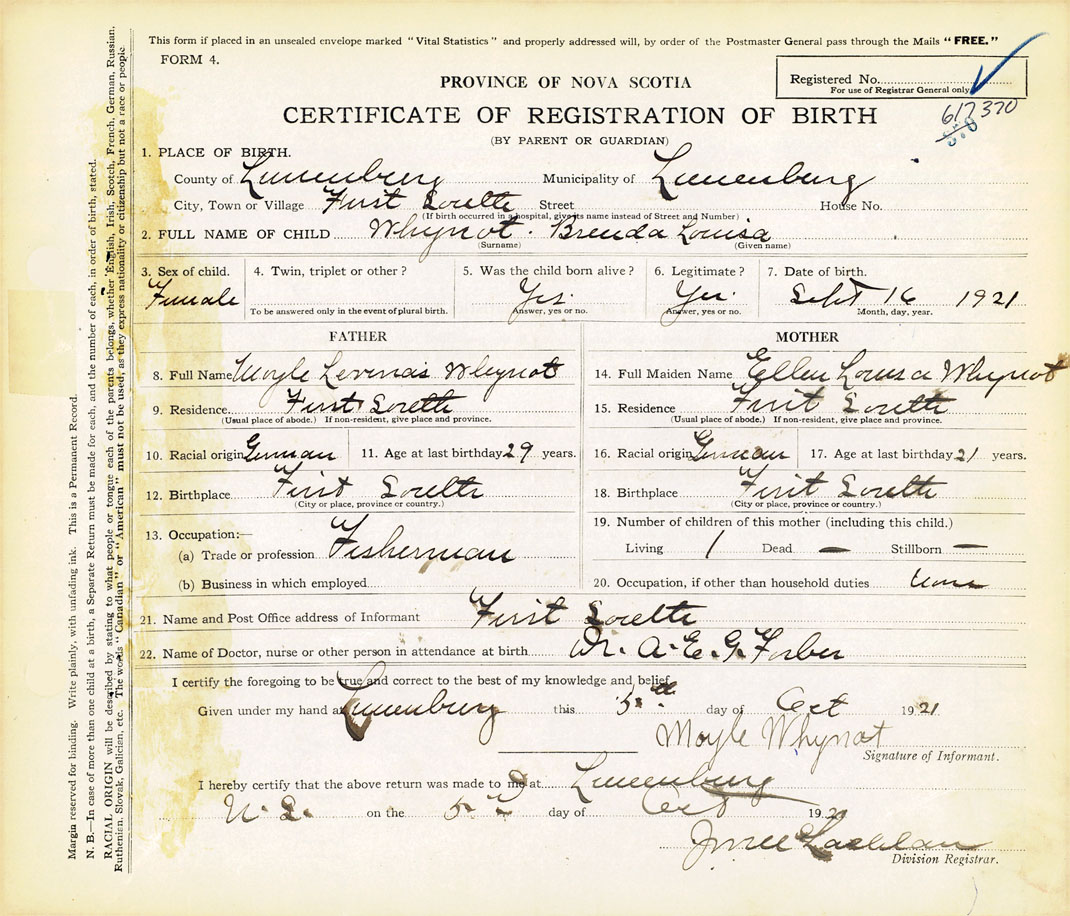 This form if placed in an unsealed envelope marked "Vital Statistics" and properly addressed will, by order of the Postmaster General pass through the Mails "FREE."
FORM 4.
Registered No.
For use of Registrar General only
617370
PROVINCE OF NOVA SCOTIA
CERTIFICATE OF REGISTRATION OF BIRTH
(BY PARENT OR GUARDIAN)
1. PLACE OF BIRTH.
County of Lunenburg Municipality of Lunenburg
City, Town or Village First Street House No.
(If birth occurred in a hospital, give its name instead of Street and Number)
2. FULL NAME OF CHILD Whynot. Brenda Louisa
(Surname) (Given name)
3. Sex of child. 4. Twin, triplet or other? 5. Was the child born alive? 6. Legitimate? 7. Date of birth.
Female Yes. Yes. Sept 16 1921
To be answered only in the event of plural birth. Answer, yes or no. Answer, yes or no. Month, day, year.
FATHER MOTHER
8. Full Name Moyle Whynot 14. Full Maiden Name Ellen Louisa Whynot
9. Residence First 15. Residence First
(Usual place of abode.) If non-resident, give place and province. (Usual place of abode.) If non-resident, give place and province.
10. Racial origin German 11. Age at last birthday 29 years. 16. Racial origin German 17. Age at last birthday 21 years.
12. Birthplace First 18. Birthplace First
(City or place, province or country.) (City or place, province or country.)
13. Occupation:— 19. Number of children of this mother (including this child.)
(a) Trade or profession Fisherman Living 1 Dead — Stillborn —
(b) Business in which employed 20. Occupation, if other than household duties none
21. Name and Post Office address of Informant First
22. Name of Doctor, nurse or other person in attendance at birth Dr. A. E. G. Forbes
I certify the foregoing to be true and correct to the best of my knowledge and belief.
Given under my hand at Lunenburg this 5th day of Oct 1921
Moyle Whynot
Signature of Informant.
I hereby certify that the above return was made to me at Lunenburg
N. S. on the 5 day of Oct 192
Division Registrar.
Margin reserved for binding. Write plainly, with unfading ink. This is a Permanent Record.
N. B.—In case of more than one child at a birth, a Separate Return must be made for each, and the number of each, in order of birth, stated.
RACIAL ORIGIN will be described by stating to what people or tongue each of the parents belongs, whether English, Irish, Scotch, French, German, Russian.
Ruthenian, Slovak, Galician, etc. The words "Canadian" or "American" must not be used, as they express nationality or citizenship but not a race or people.